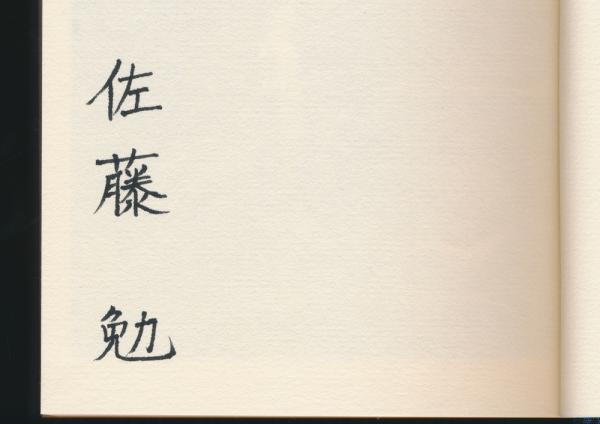 佐藤 勉